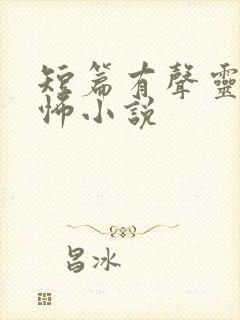 短篇有聲靈
怖小說
昌冰